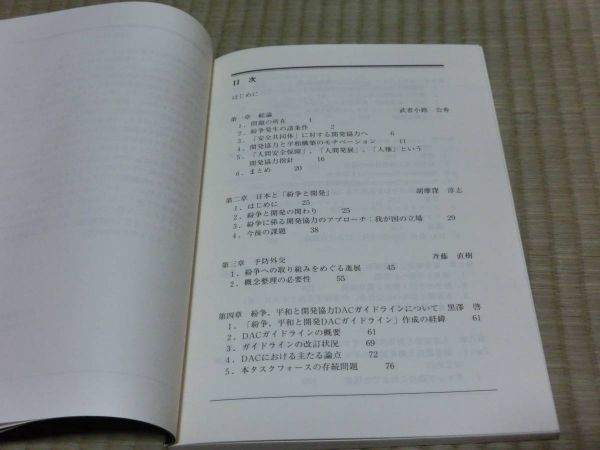 目 次
はじめに
第一章 総論 武者小路 公秀
1．問題の所在 1
2．紛争発生の諸条件 2
3．「安全共同体」に対する開発協力へ 6
4．開発協力と平和構築のモチベーション 11
5．「人間安全保障」、「人間発展」、「人権」という
開発協力指針 16
6．まとめ 20
第二章 日本と「紛争と開発」 胡摩窪 淳志
1．はじめに 25
2．紛争と開発の関わり 25
3．紛争に係る開発協力のアプローチ：我が国の立場 29
4．今後の課題 38
第三章 予防外交 斉藤 直樹
1．紛争への取り組みをめぐる進展 45
2．概念整理の必要性 55
第四章 紛争、平和と開発協力DACガイドラインについて 黒澤 啓
1．「紛争、平和と開発DACガイドライン」作成の経緯 61
2．DACガイドラインの概要 61
3．ガイドラインの改訂状況 69
4．DACにおける主たる論点 72
5．本タスクフォースの存続問題 76